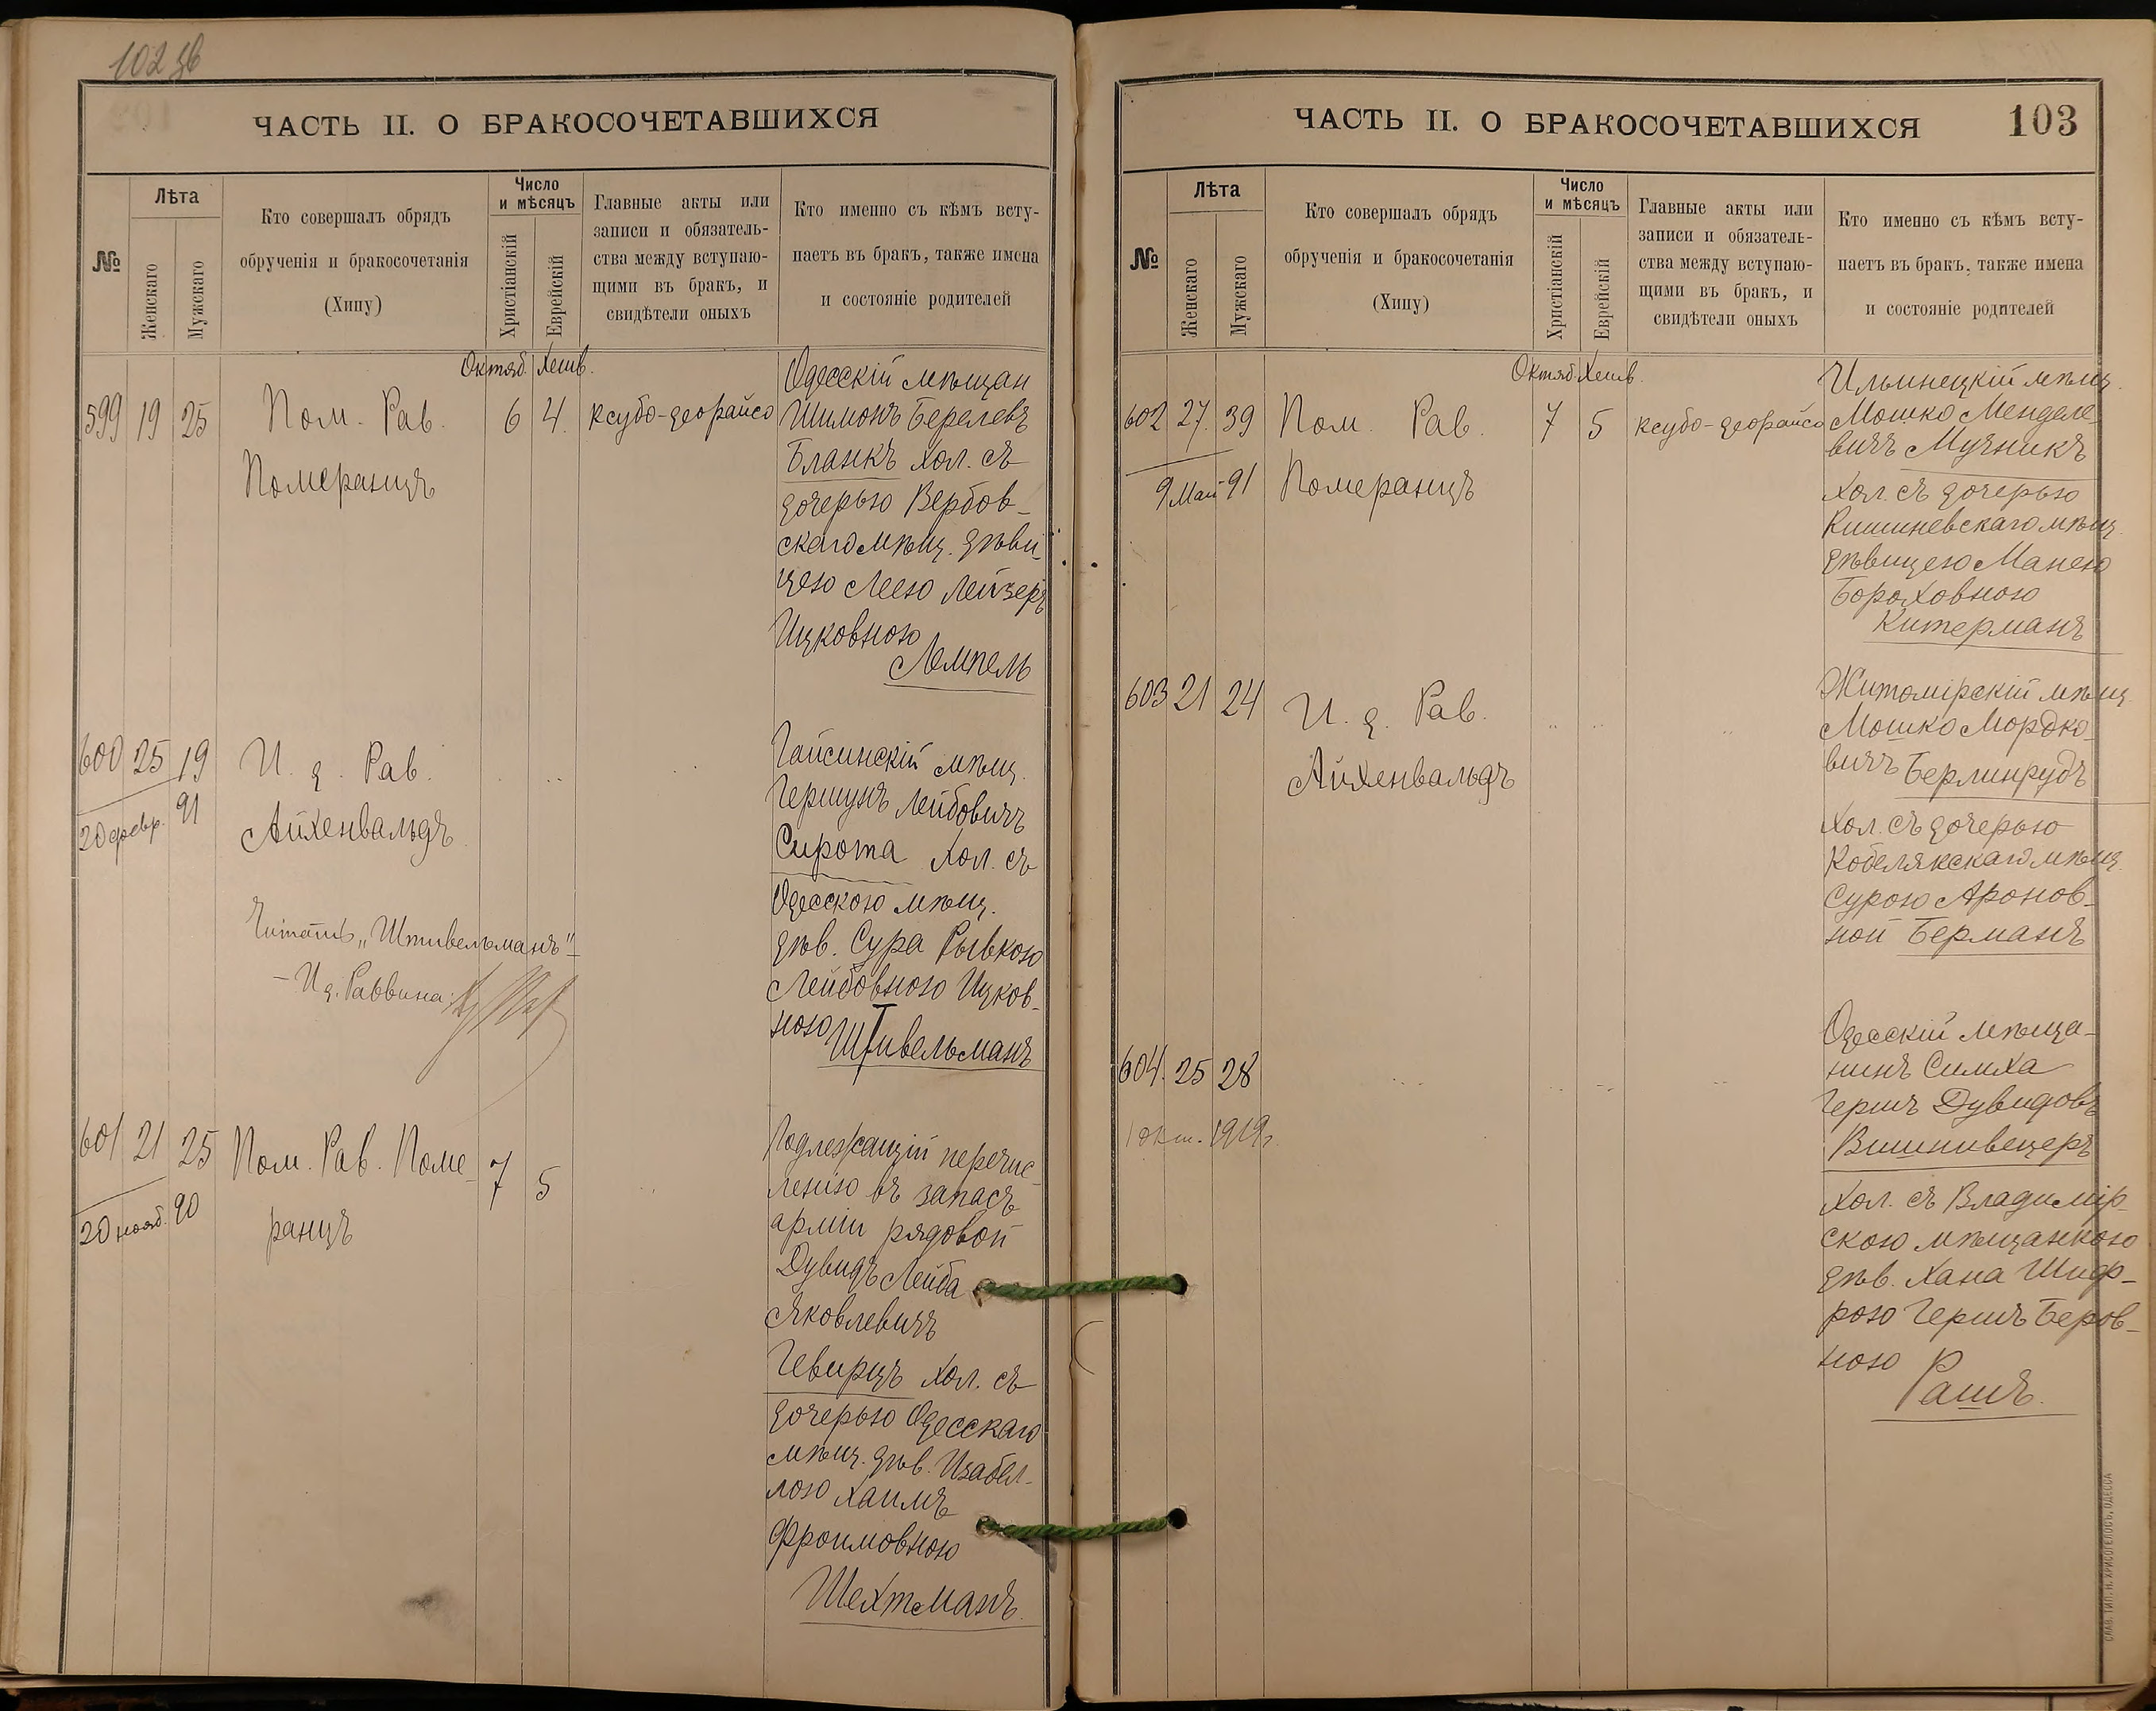 102 зв
ЧАСТЬ II. О БРАКОСОЧЕТАВШИХСЯ
№
Лѣта
Женскаго
Мужскаго
Кто совершалъ обрядъ
обрученія и бракосочетанія
(Хипу)
Число
и мѣсяцъ
Христіанскій
Еврейскій
Главные акты или
записи и обязатель-
ства между вступаю-
щими въ бракъ, и
свидѣтели оныхъ
Кто именно съ кѣмъ всту-
паетъ въ бракъ, также имена
и состояніе родителей
Октяб. Хешв.
599 19 25
Пом. Рав.
Померанцъ
6 4.
ксубо-деорайсо
Одесскій мѣщан
Шимонъ Берелевъ
Бланкъ хол. съ
дочерью Вербов-
скаго мѣщ. дѣви-
цею Леею Лейзеръ
Ицковною
Лемпель
600 25 19
20 февр. 91
И. д. Рав.
Айхенвальдъ
Читать „Штивельманъ"-
- И д. Раввина:
Гайсинскій мѣщ.
Гершунъ Лейбовичъ
Сирота хол. съ
Одесскою мѣщ.
дѣв. Сура Рывкою
Лейбовною Ицков-
ною Штивельманъ
601 21 25
20 нояб. 90
Пом. Рав. Поме-
ранцъ
7 5
Подлежащій перечис-
ленію въ запасъ
арміи рядовой
Дувидъ Лейба
Яковлевичъ
Гевирцъ хол. съ
дочерью Одесскаго
мѣщ. дѣв. Изабел-
лою Хаимъ
Фроимовною
Шехтманъ.
ЧАСТЬ II. О БРАКОСОЧЕТАВШИХСЯ
103
№
Лѣта
Женскаго
Мужскаго
Кто совершалъ обрядъ
обрученія и бракосочетанія
(Хипу)
Число
и мѣсяцъ
Христіанскій
Еврейскій
Главные акты или
записи и обязатель-
ства между вступаю-
щими въ бракъ, и
свидѣтели оныхъ
Кто именно съ кѣмъ всту-
паетъ въ бракъ, также имена
и состояніе родителей
Октяб. Хешв.
602 27. 39
9 Мая 91
Пом. Рав.
Померанцъ
7 5
ксубо-деорайсо
Ильинецкій мѣщ.
Мошко Менделе-
вичъ Мучникъ
хол. съ дочерью
Кишиневскаго мѣщ.
дѣвицею Манею
Бороховною
Китерманъ
603 21 24
И. д. Рав.
Айхенвальдъ
Житомірскій мѣщ.
Мошко Мордко-
вичъ Берлинрудъ
хол. съ дочерью
Кобелякскаго мѣщ.
Сурою Аронов-
ной Берманъ
604. 25 28
1 окт. 1919г.
Одесскій мѣща-
нинъ Симха
Гершъ Дувидовъ
Вишнивецеръ
хол. съ Владимір-
скою мѣщанкою
дѣв. Хана Шиф-
рою Гершъ Беров-
ною Рашъ.
СЛАВ. ТИП. Н. ХРИСОГЕЛОСЪ, ОДЕССА